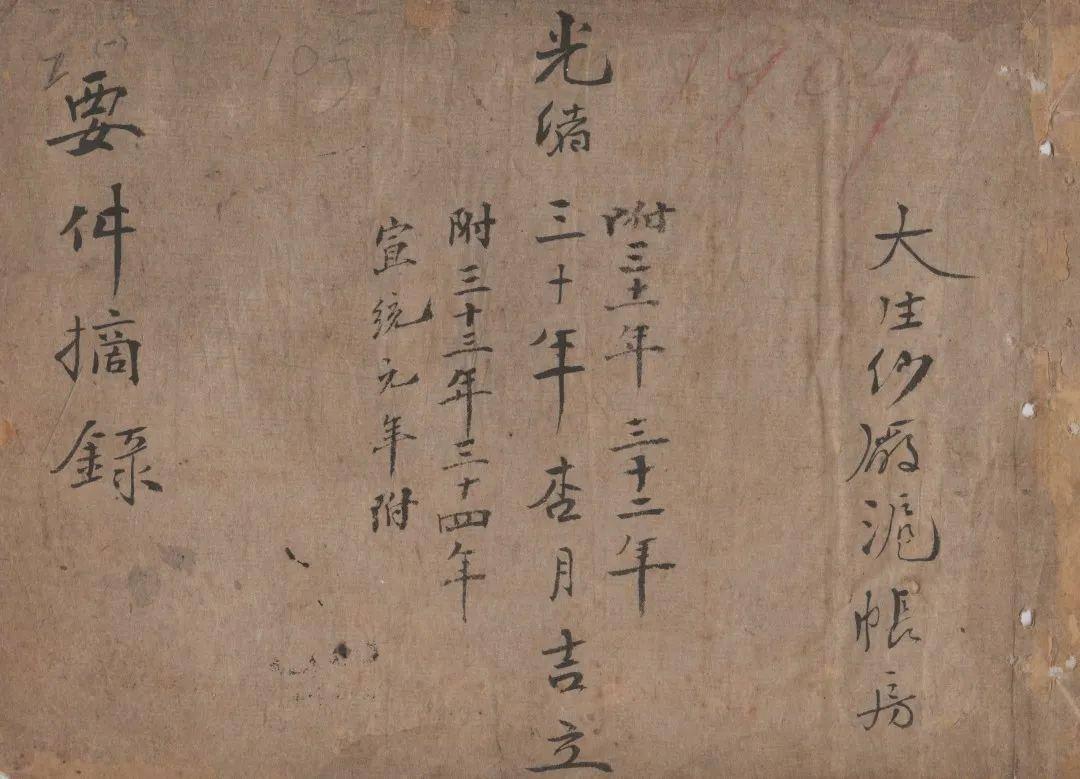 大生纱廠滬帳房
附三十一年 三十二年
光緒三十年杏月吉立
附三十三年三十四年
宣統元年附
要件摘錄
1904
105